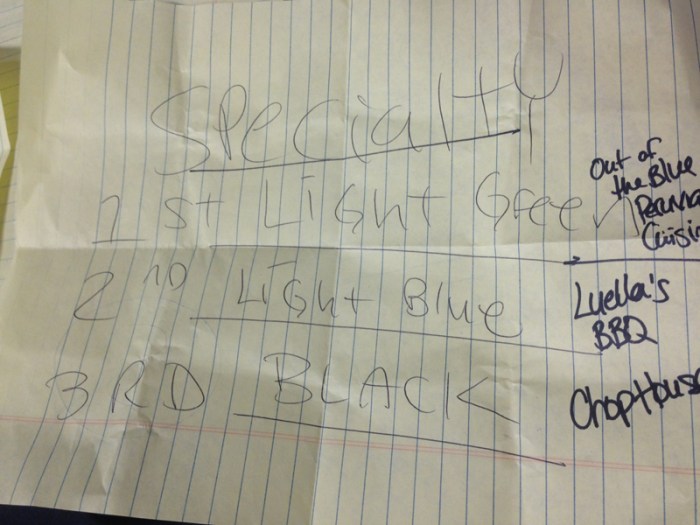 Specialty
1st Light Green
Out of
the Blue
2ND Light Blue
Luella's
BBQ
3RD BLACK
ChopHouse